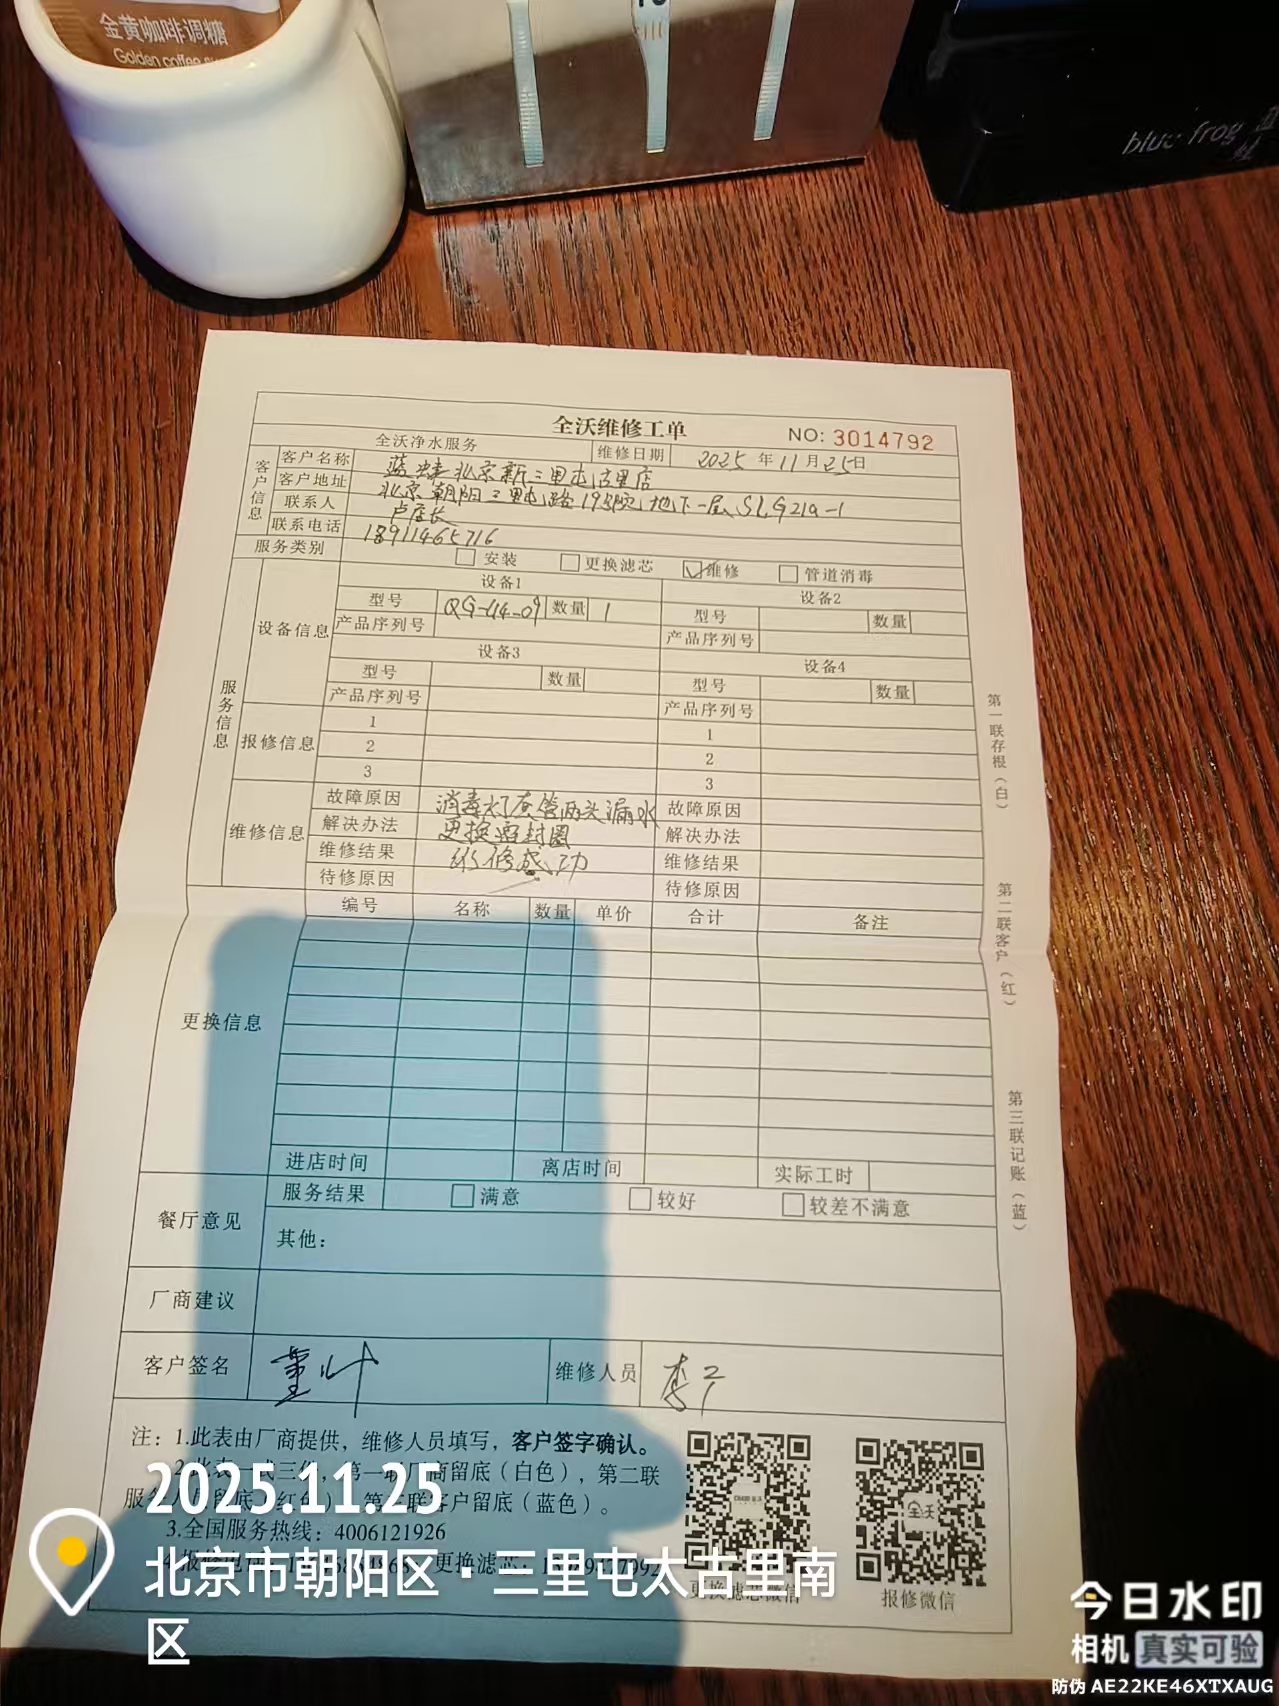 金黄咖啡调糖
Golden coffee
blue frog
全沃维修工单
NO: 3014792
全沃净水服务
维修日期
2025年11月25日
客户信息
客户名称
蓝蛙北京新三里屯古里店
客户地址
北京朝阳三里屯路19号院地下一层SLG21a-1
联系人
卢店长
联系电话
18911465716
服务类别
安装
更换滤芯
维修
管道消毒
服务信息
设备信息
设备1
设备2
型号
QG-U4-09
数量
1
型号
数量
产品序列号
产品序列号
设备3
设备4
型号
数量
型号
数量
产品序列号
产品序列号
报修信息
1
1
2
2
3
3
维修信息
故障原因
消毒灯套管两头漏水
故障原因
解决办法
更换密封圈
解决办法
维修结果
维修成功
维修结果
待修原因
待修原因
更换信息
编号
名称
数量
单价
合计
备注
进店时间
离店时间
实际工时
餐厅意见
服务结果
满意
较好
较差不满意
其他：
厂商建议
客户签名
维修人员
第一联存根（白）
第二联客户（红）
第三联记账（蓝）
注：1.此表由厂商提供，维修人员填写，客户签字确认。
2.此表一式三份，第一联厂商留底（白色），第二联
服务 留底 红色 第三联客户留底（蓝色）。
3.全国服务热线：4006121926
更换滤芯：
更换滤芯微信
报修微信
全沃
2025.11.25
北京市朝阳区·三里屯太古里南
区
今日水印
相机 真实可验
防伪 AE22KE46XTXAUG